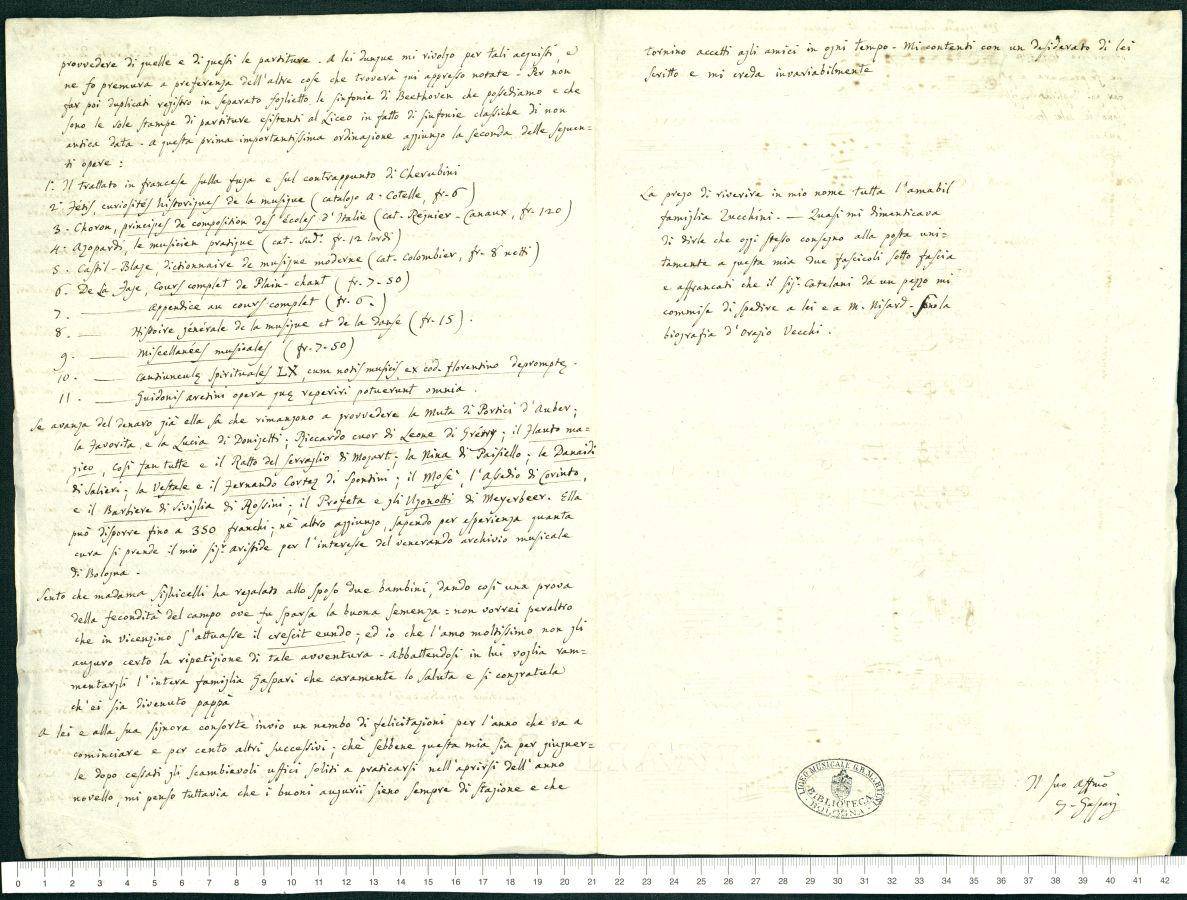 provvedere di quelle e di questi le partiture. A lei dunque mi rivolgo per tali acquisti, e
ne fo premura a preferenza dell'altre cose che troverà qui appresso notate. Per non
far poi duplicati registro in separato foglietto le sinfonie di Beethoven che possediamo e che
sono le sole stampe di partiture esistenti al Liceo in fatto di sinfonie classiche di non
antica data. A questa prima importantissima ordinazione aggiungo la seconda delle seguen=
ti opere:
1. Il trattato in francese sulla fuga e sul contrappunto di Cherubini
2. Fétis, curiosités historiques de la musique (catalogo A. Cotelle, fr. 6)
3. Choron, principes de composition des écoles d'Italie (cat. Regnier-Canaux, fr. 120)
4. Azopardi, le musicien pratique (cat. sud.º fr. 12 lordi)
5. Castil-Blaze, dictionnaire de musique moderne (cat. Colombier, fr. 8 netti)
6. De La Fage, Cours complet de Plain-chant (fr. 7.50)
7. —— Appendice au cours complet (fr. 6.)
8. —— Histoire générale de la musique et de la danse (fr. 15).
9. —— Miscellanées musicales (fr. 7.50)
10. —— Cantiunculę spirituales LX, cum notis musicis ex cod. florentino depromptę.
11. —— Guidonis aretini opera quę reperiri potuerunt omnia.
Se avanza del denaro già ella sa che rimangono a provvedere la Muta di Portici d'Auber;
la Favorita e la Lucia di Donizetti; Riccardo cuor di Leone di Grétry; il Flauto ma=
gico, Così fan tutte e il Ratto del serraglio di Mozart; la Nina di Paisiello; le Danaidi
di Salieri; la Vestale e il Fernando Cortez di Spontini; il Mosè, l'Assedio di Corinto,
e il Barbiere di Siviglia di Rossini; il Profeta e gli Ugonotti di Meyerbeer. Ella
può disporre fino a 350 franchi; nè altro aggiungo, sapendo per esperienza quanta
cura si prende il mio sig.r Aristide per l'interesse del venerando archivio musicale
di Bologna.
Sento che madama Sighicelli ha regalato allo sposo due bambini, dando così una prova
della fecondità del campo ove fu sparsa la buona semenza: non vorrei peraltro
che in Vicenzino s'attuasse il crescit eundo; ed io che l'amo moltissimo non gli
auguro certo la ripetizione di tale avventura. Abbattendosi in lui voglia ram=
mentargli l'intera famiglia Gaspari che caramente lo saluta e si congratula
ch'ei sia divenuto pappà
A lei e alla sua signora consorte invio un nembo di felicitazioni per l'anno che va a
cominciare e per cento altri successivi; chè sebbene questa mia sia per giugner=
le dopo cessati gli scambievoli uffici soliti a praticarsi nell'aprirsi dell'anno
novello, mi penso tuttavia che i buoni augurii sieno sempre di stagione e che
tornino accetti agli amici in ogni tempo. Mi contenti con un desiderato di lei
scritto e mi creda invariabilmente
La prego di riverire in mio nome tutta l'amabil
famiglia Zucchini. — Quasi mi dimenticava
di dirle che oggi stesso consegno alla posta uni=
tamente a questa mia due fascicoli sotto fascia
e affrancati che il sig.r Catelani da un pezzo mi
commise di spedire a lei e a M. Nisard.
biografia d'Orazio Vecchi.
Il suo affmo
G. Gaspari
LICEO MUSICALE G.B. MARTINI
BIBLIOTECA
BOLOGNA
0 1 2 3 4 5 6 7 8 9 10 11 12 13 14 15 16 17 18 19 20 21 22 23 24 25 26 27 28 29 30 31 32 33 34 35 36 37 38 39 40 41 42